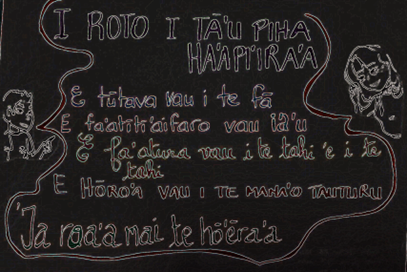 I ROTO I TĀ'U PIHA
HA'API'IRA'A
E tūtava vau i te fā
E fa'atīti'āifaro vau iā'u
E fa'atura vau i te tahi 'e i te
tahi
E HŌRO'A VAU I TE MANA'O TAUTURU
'Ia roa'a mai te hō'ēra'a